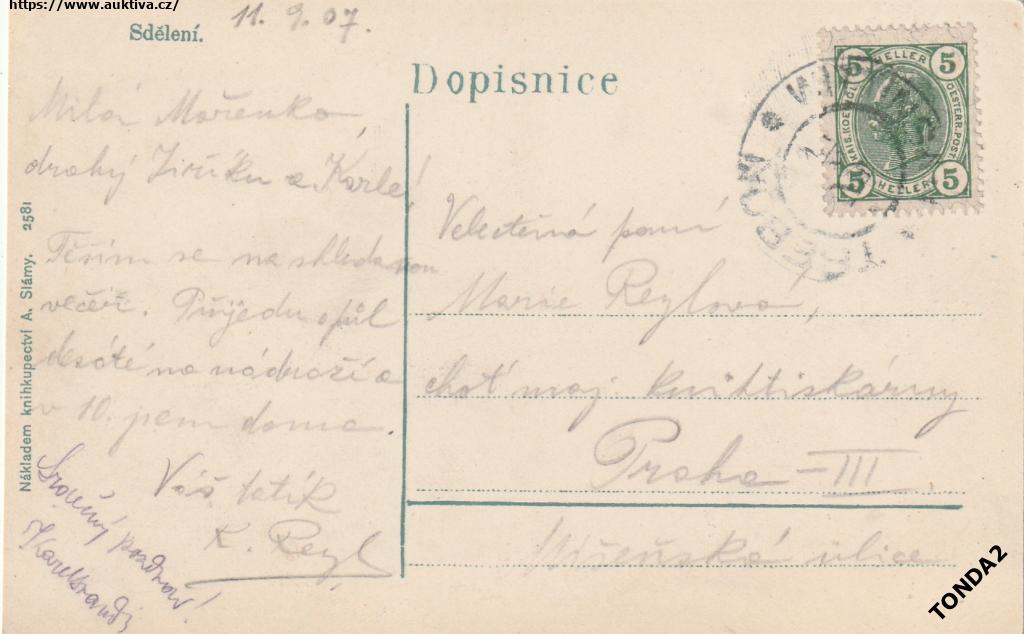 https://www.auktiva.cz/
Sdělení.
11. 9. 07.
Dopisnice
Milá Mařenko,
drahý Jiříku a Karle!
Těším se na shledanou
večer. Přijedu o půl
desáté na nádraží a
v 10. jsem doma.
Váš tatík
K. Reyl
Srdečný pozdrav!
Nákladem knihkupectví A. Slámy. 2581
Velectěná paní
Marie Reylová,
choť maj. knihtiskárny
Praha - III
Míšeňská ulice
5 HELLER 5
KAIS. KOENIGL. OESTERR. POST
5 HELLER 5
TŘEBOŇ
WITTINGAU
TONDA2